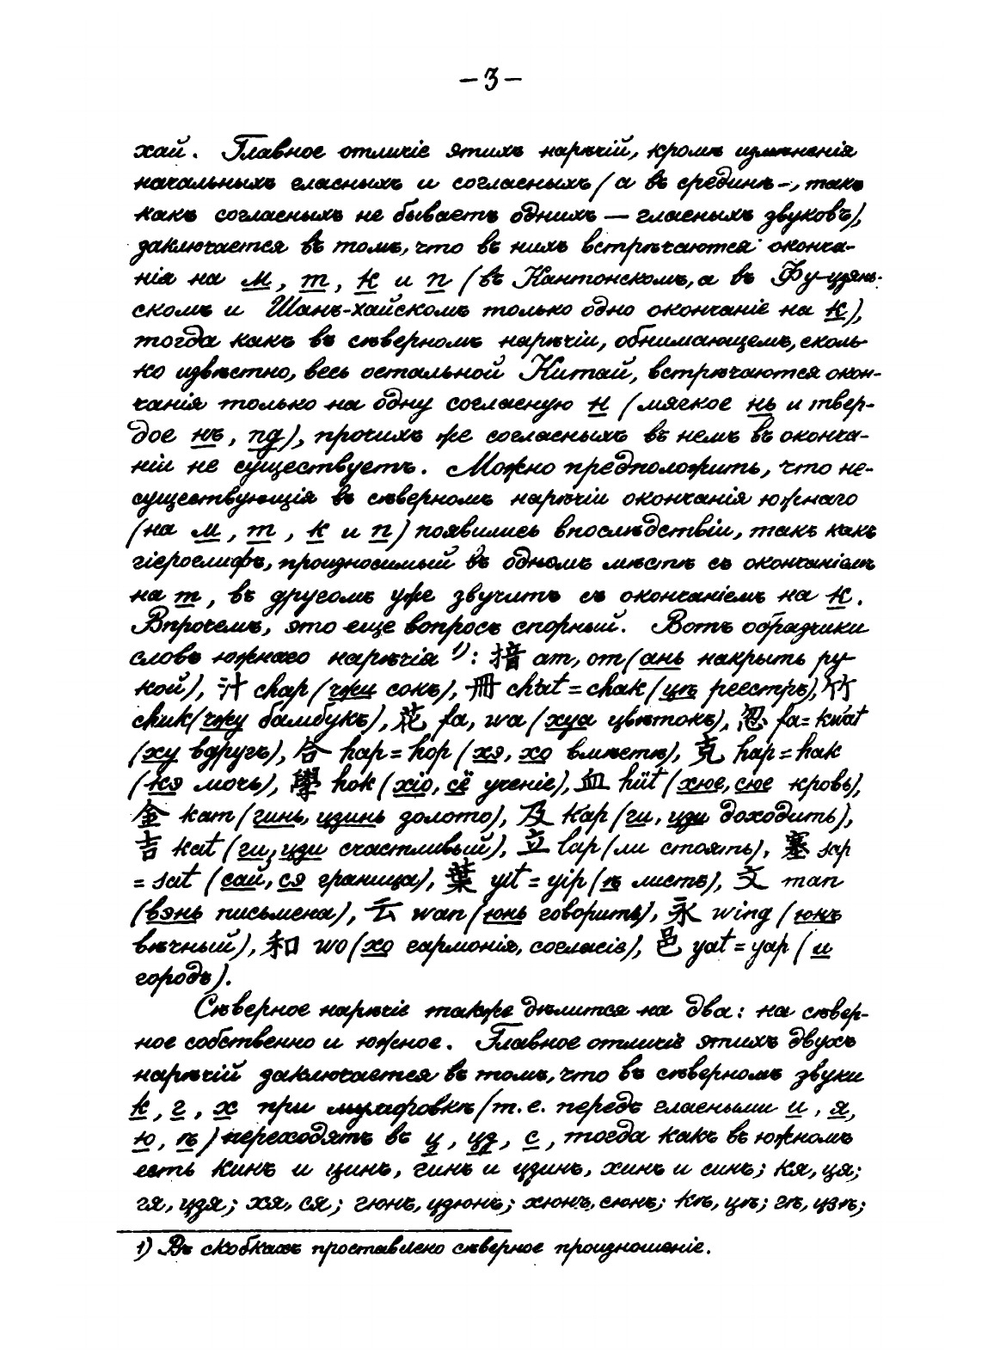 — 3 —
хай. Главное отличіе этихъ нарѣчій, кромѣ измѣненія
начальныхъ гласныхъ и согласныхъ (а въ срединѣ –, такъ
какъ согласныхъ не бываетъ однихъ — гласныхъ звуковъ),
заключается въ томъ, что въ нихъ встрѣчаются оконча-
нія на м, т, к и п (въ Кантонскомъ, а въ Фу-цзянь-
скомъ и Шанъ-хайскомъ только одно окончаніе на к),
тогда какъ въ сѣверномъ нарѣчіи, обнимающемъ, сколь-
ко извѣстно, весь остальной Китай, встрѣчаются окон-
чанія только на одну согласную н (мягкое нь и твер-
дое нъ, нд), прочихъ же согласныхъ въ немъ въ оконча-
ніи не существуетъ. Можно предположить, что не-
существующія въ сѣверномъ нарѣчіи окончанія южнаго
(на м, т, к и п) появились впослѣдствіи, такъ какъ
гіероглифъ, произносимый въ одномъ мѣстѣ съ окончаніемъ
на т, въ другомъ уже звучитъ съ окончаніемъ на к.
Впрочемъ, это еще вопросъ спорный. Вотъ образчики
словъ южнаго нарѣчія ¹): 揞 am, om (ань накрыть ру-
кой), 汁 chap (чжи сокъ), 冊 ch'at = chak (цѣ реестръ), 竹
chuk (чжу бамбукъ), 花 fa, wa (хуа цвѣтокъ), 忽 fa = kwat
(ху вдругъ), 合 hap = hop (хэ, хо вмѣстѣ), 克 hap = hak
(кэ мочь), 學 hok (хіо, сё ученіе), 血 hüt (хюе, сюе кровь),
金 kam (гинь, цзинь золото), 及 k'ap (ги, цзи доходить),
吉 kat (ги, цзи счастливый), 立 lap (ли стоять), 塞 sap
= sat (сай, сэ граница), 葉 yit = yip (ѣ листъ), 文 man
(вэнь письмена), 云 wan (юнь говорить), 永 wing (юнъ
вѣчный), 和 wo (хо гармонія, согласіе), 邑 yat = yap (и
городъ).
Сѣверное нарѣчіе также дѣлится на два: на сѣвер-
ное собственно и южное. Главное отличіе этихъ двухъ
нарѣчій заключается въ томъ, что въ сѣверномъ звуки
к, г, х при мулифровкѣ (т. е. передъ гласными и, я,
ю, ѣ) переходятъ въ ц, цз, с, тогда какъ въ южномъ
есть кинь и цинь, гинь и цзинь, хинъ и синъ; кя, ця;
гя, цзя; хя, ся; гюнь, цзюнь; хюнъ, сюнъ; кѣ, цѣ; гѣ, цзѣ;
1) Въ скобкахъ проставлено сѣверное произношеніе.